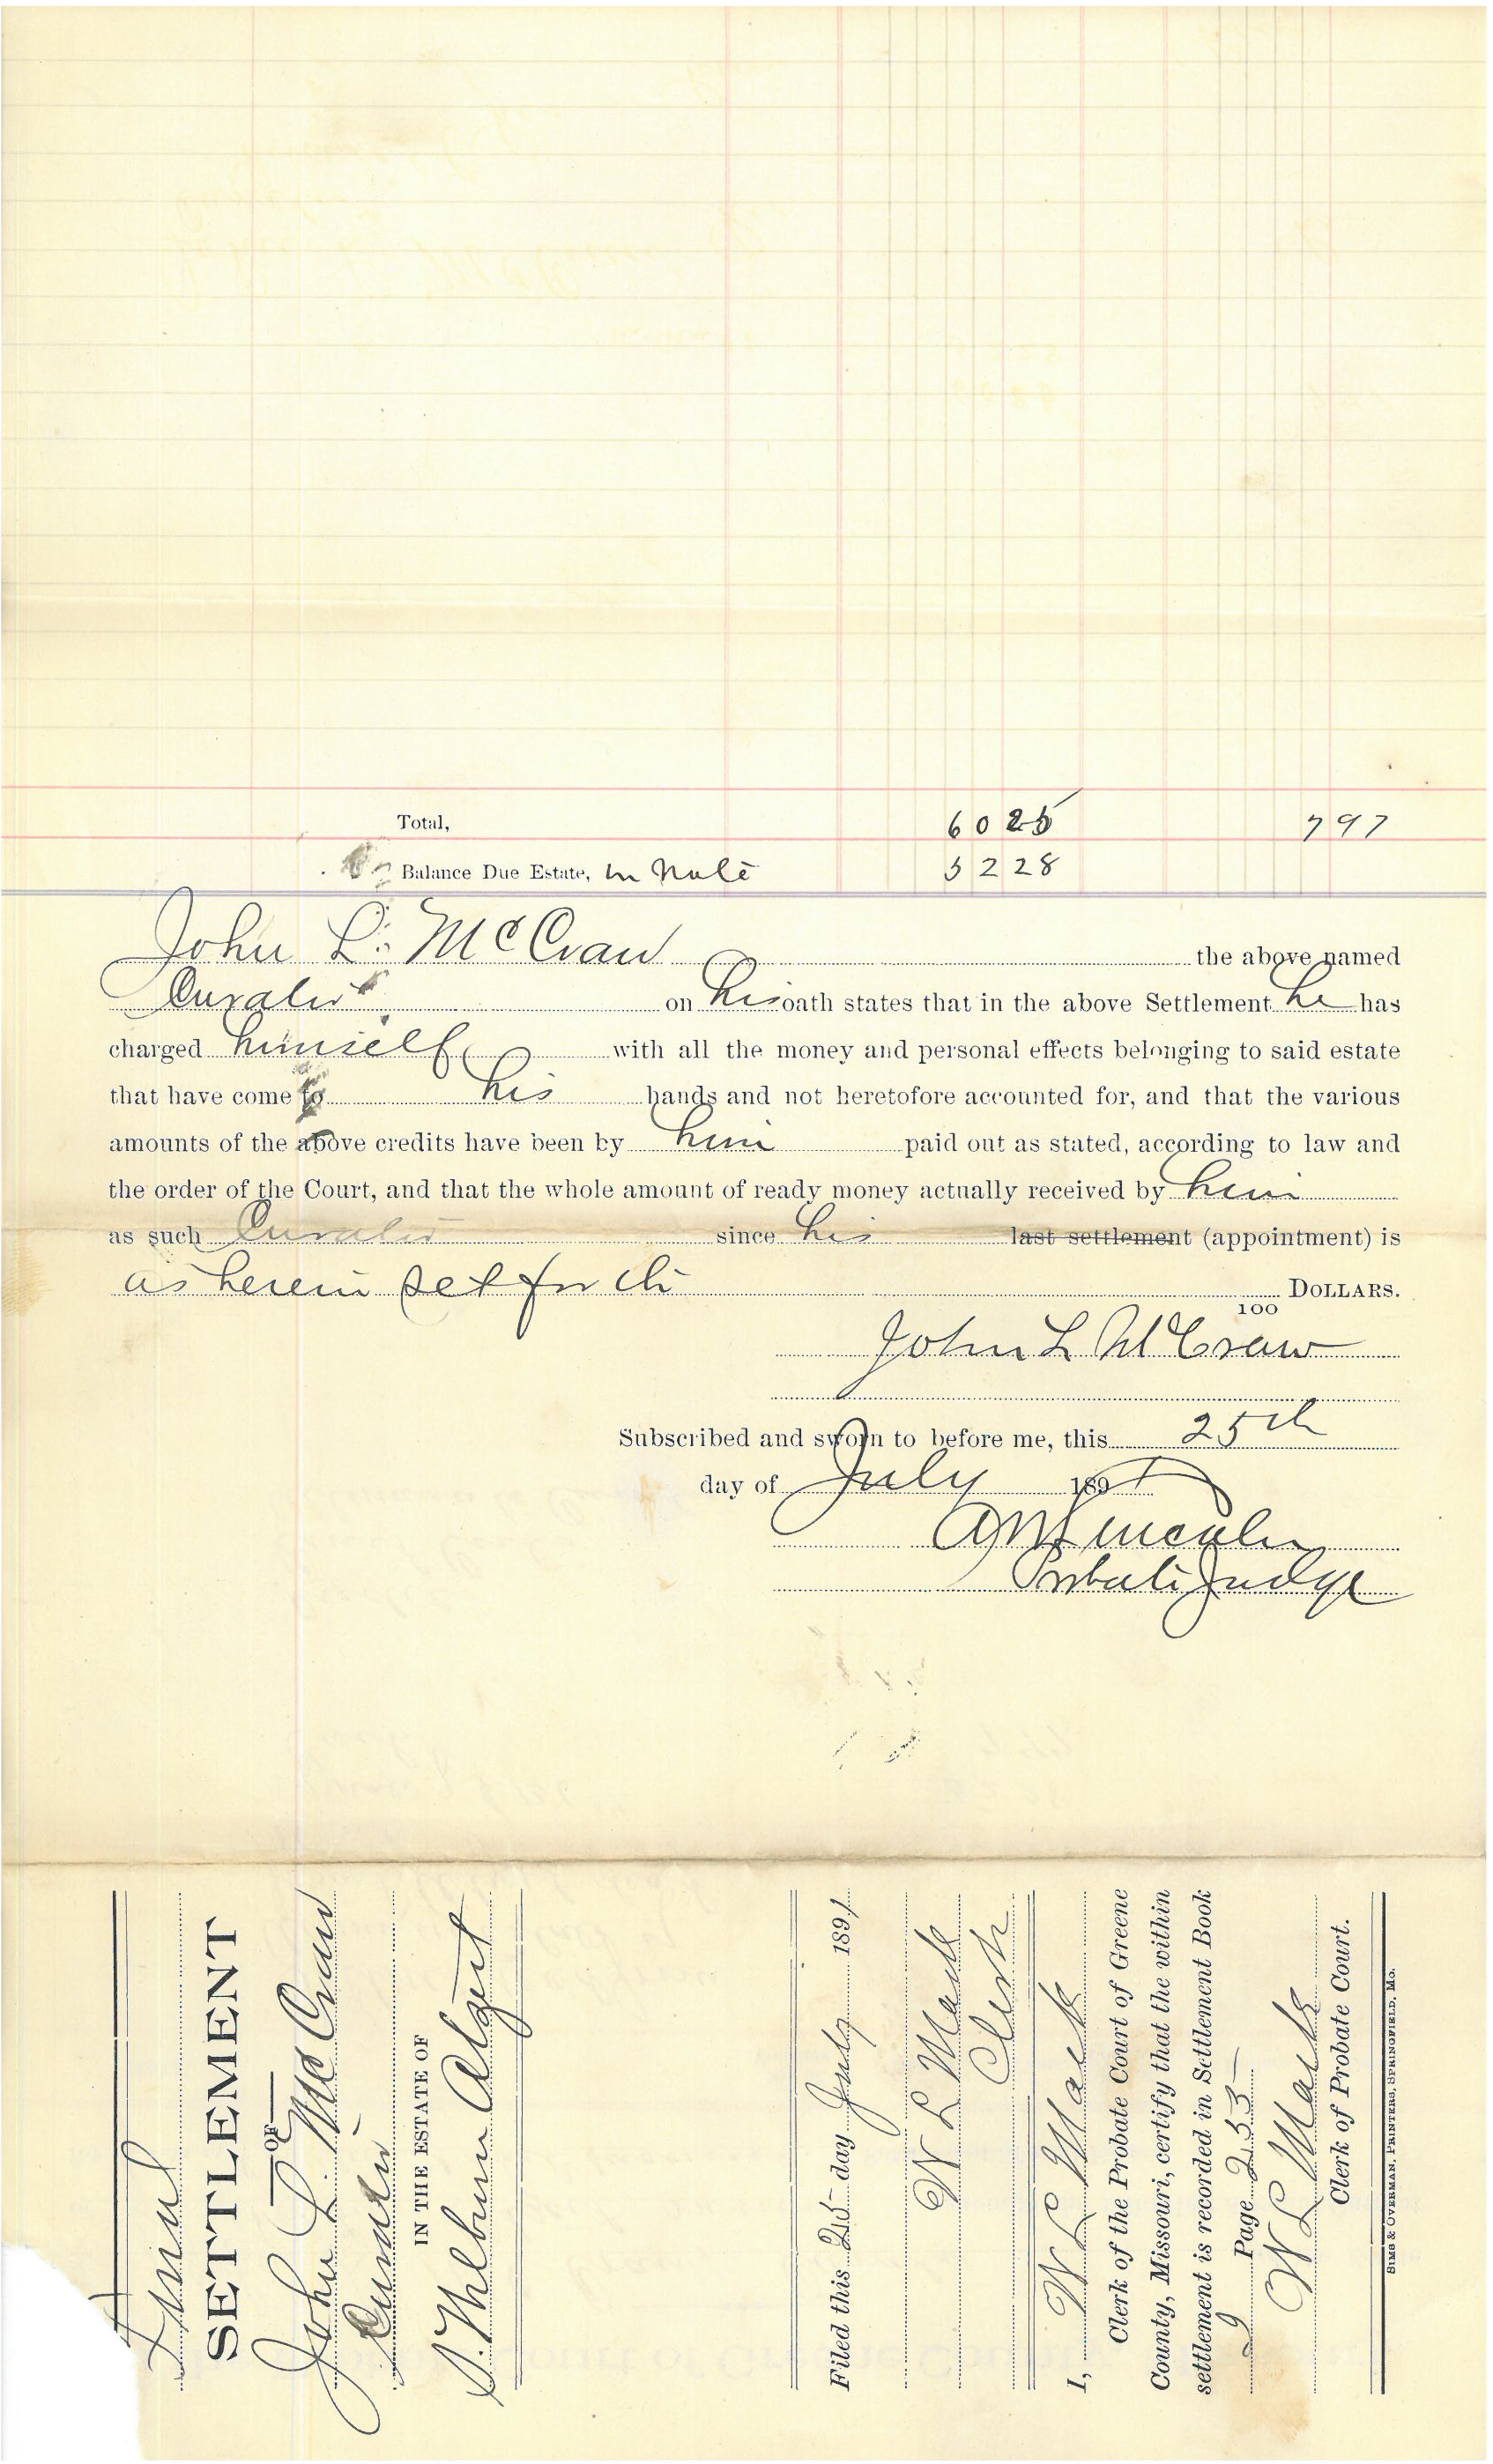 Total, 60 25 7 97
Balance Due Estate, in Note 52 28
John L. McCraw the above named
Curator on his oath states that in the above Settlement he has
charged himself with all the money and personal effects belonging to said estate
that have come to his hands and not heretofore accounted for, and that the various
amounts of the above credits have been by him paid out as stated, according to law and
the order of the Court, and that the whole amount of ready money actually received by him
as such Curator since his last settlement (appointment) is
as herein set forth DOLLARS.
100
John L McCraw
Subscribed and sworn to before me, this 25th
day of July 189
Lincoln
Probate Judge
Final
SETTLEMENT
OF
John L. McCraw
Curator
IN THE ESTATE OF
S. Wilburn Alzert
Filed this 25 day July 1891
W L Mack
Clerk
I, W L Mack
Clerk of the Probate Court of Greene
County, Missouri, certify that the within
settlement is recorded in Settlement Book
9 Page 255
W L Mack
Clerk of Probate Court.
SIMS & OVERMAN, PRINTERS, SPRINGFIELD, MO.